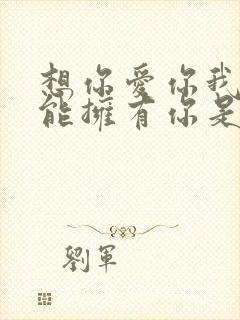 想你愛你我
能擁有你是
劉軍